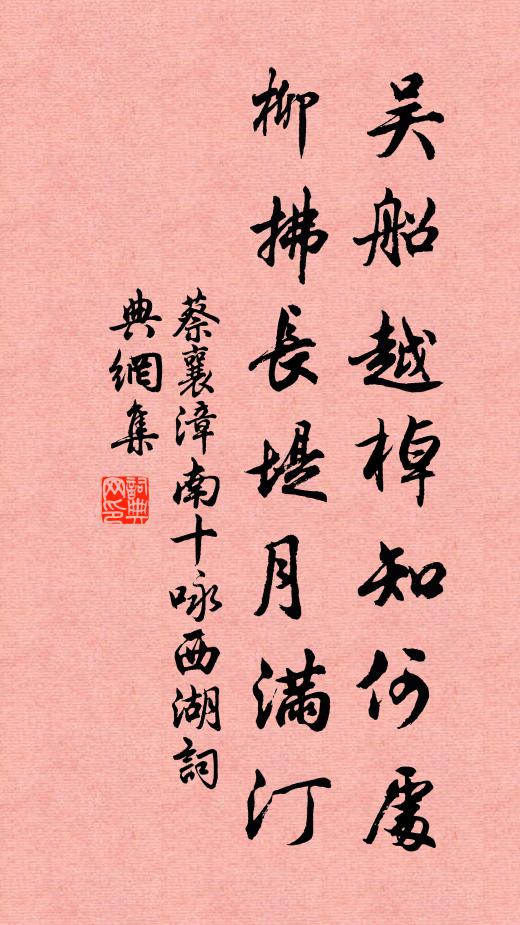 吴船越棹知何處
柳拂長堤月滿汀
蔡襄漳南十咏西湖詞
典網集
詞典网印